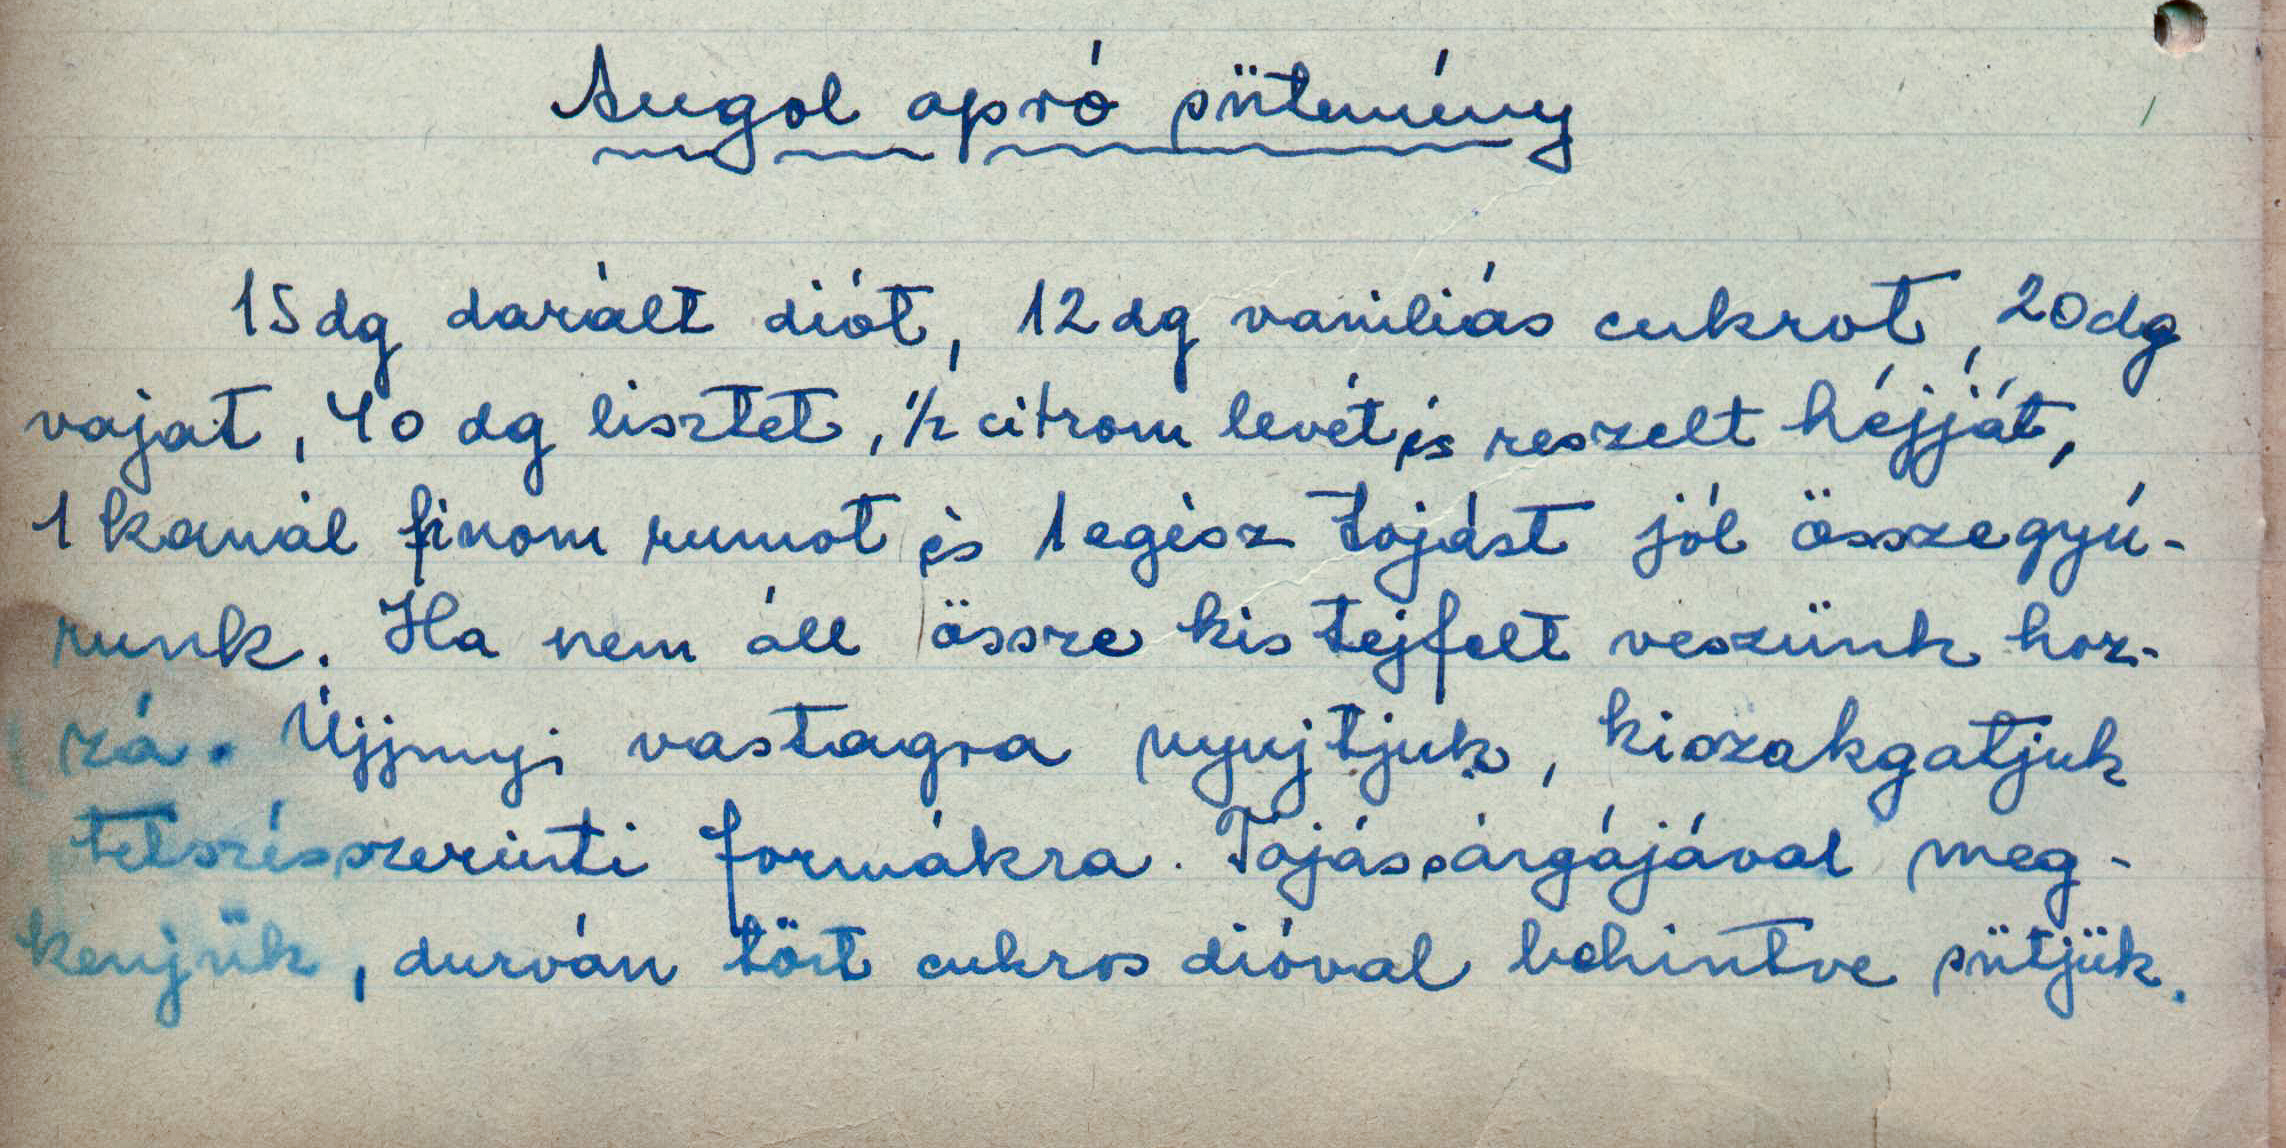 Angol apró sütemény
15dg darált diót, 12dg vaniliás cukrot, 20dg
vajat, 40 dg lisztet, 1/2 citrom levét és reszelt héjját,
1 kanál finom rumot és 1 egész tojást jól összegyú-
runk. Ha nem áll össze kis tejfelt veszünk hoz-
zá. Újjnyi vastagra nyujtjuk, kiszakgatjuk
tetszésszerinti formákra. Tojássárgájával meg-
kenjük, durván tört cukros dióval behintve sütjük.